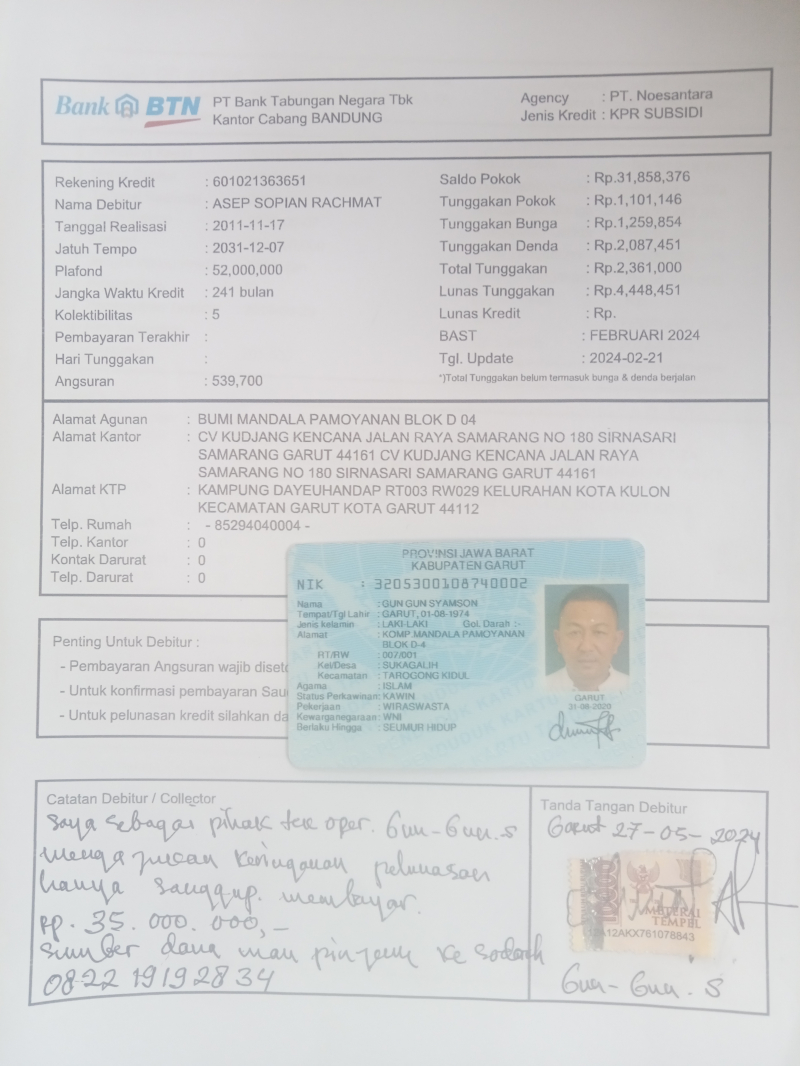 Bank BTN PT Bank Tabungan Negara Tbk
Kantor Cabang BANDUNG
Agency : PT. Noesantara
Jenis Kredit : KPR SUBSIDI
Rekening Kredit : 601021363651
Nama Debitur : ASEP SOPIAN RACHMAT
Tanggal Realisasi : 2011-11-17
Jatuh Tempo : 2031-12-07
Plafond : 52,000,000
Jangka Waktu Kredit : 241 bulan
Kolektibilitas : 5
Pembayaran Terakhir :
Hari Tunggakan :
Angsuran : 539,700
Saldo Pokok : Rp.31,858,376
Tunggakan Pokok : Rp.1,101,146
Tunggakan Bunga : Rp.1,259,854
Tunggakan Denda : Rp.2,087,451
Total Tunggakan : Rp.2,361,000
Lunas Tunggakan : Rp.4,448,451
Lunas Kredit : Rp.
BAST : FEBRUARI 2024
Tgl. Update : 2024-02-21
*)Total Tunggakan belum termasuk bunga & denda berjalan
Alamat Agunan : BUMI MANDALA PAMOYANAN BLOK D 04
Alamat Kantor : CV KUDJANG KENCANA JALAN RAYA SAMARANG NO 180 SIRNASARI
SAMARANG GARUT 44161 CV KUDJANG KENCANA JALAN RAYA
SAMARANG NO 180 SIRNASARI SAMARANG GARUT 44161
Alamat KTP : KAMPUNG DAYEUHANDAP RT003 RW029 KELURAHAN KOTA KULON
KECAMATAN GARUT KOTA GARUT 44112
Telp. Rumah : - 85294040004 -
Telp. Kantor : 0
Kontak Darurat : 0
Telp. Darurat : 0
PROVINSI JAWA BARAT
KABUPATEN GARUT
NIK : 3205300108740002
Nama : GUN GUN SYAMSON
Tempat/Tgl Lahir : GARUT, 01-08-1974
Jenis kelamin : LAKI-LAKI Gol. Darah :-
Alamat : KOMP.MANDALA PAMOYANAN
BLOK D-4
RT/RW : 007/001
Kel/Desa : SUKAGALIH
Kecamatan : TAROGONG KIDUL
Agama : ISLAM
Status Perkawinan: KAWIN
Pekerjaan : WIRASWASTA
Kewarganegaraan: WNI
Berlaku Hingga : SEUMUR HIDUP
GARUT
31-08-2020
Penting Untuk Debitur :
- Pembayaran Angsuran wajib diseto
- Untuk konfirmasi pembayaran Sau
- Untuk pelunasan kredit silahkan da
Catatan Debitur / Collector
Saya sebagai pihak oper. Gun-Gun.S
pelunasan
hanya sanggup membayar.
Rp. 35.000.000,-
sumber dana mau pinjam ke
0822 19192834
Tanda Tangan Debitur
Garut 27-05-2024
METERAI
TEMPEL
12AKX761078843
Gun-Gun. S